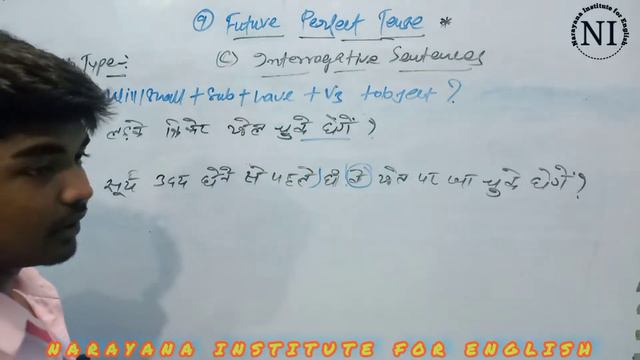 Narayana Institute for English
NI
⑨ Future Perfect Tense *
Type:- (C) Interrogative Sentences
Will/Shall + Sub + have + V3 + object ?
लड़के क्रिकेट खेल चुके होंगे ?
सूर्य उदय होने से पहले ही वे खेत पर जा चुके होंगे ?
NARAYANA INSTITUTE FOR ENGLISH